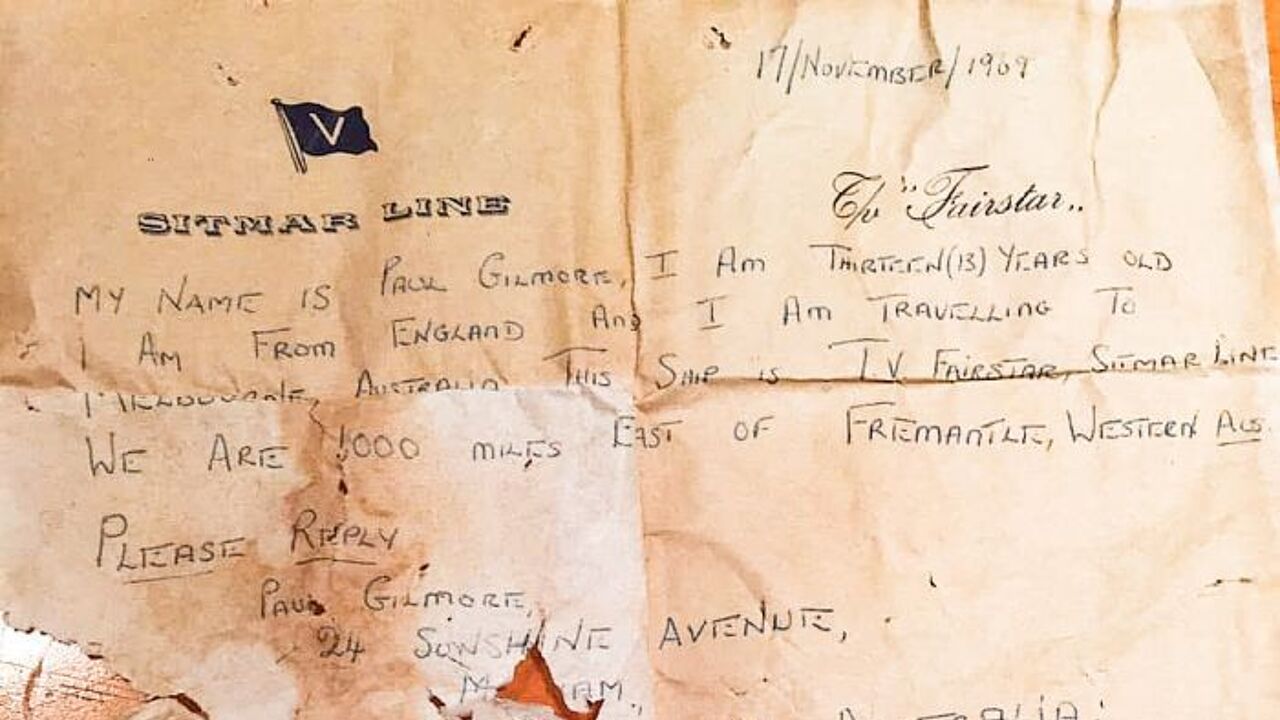 17/NOVEMBER/1969
V
SITMAR LINE
T/v "Fairstar"
MY NAME IS PAUL GILMORE, I AM THIRTEEN(13) YEARS OLD
I AM FROM ENGLAND AND I AM TRAVELLING TO
MELBOURNE, AUSTRALIA. THIS SHIP IS T.V FAIRSTAR, SITMAR LINE
WE ARE 1000 MILES EAST OF FREMANTLE, WESTERN AUS.
PLEASE REPLY
PAUL GILMORE,
24 SUNSHINE AVENUE,